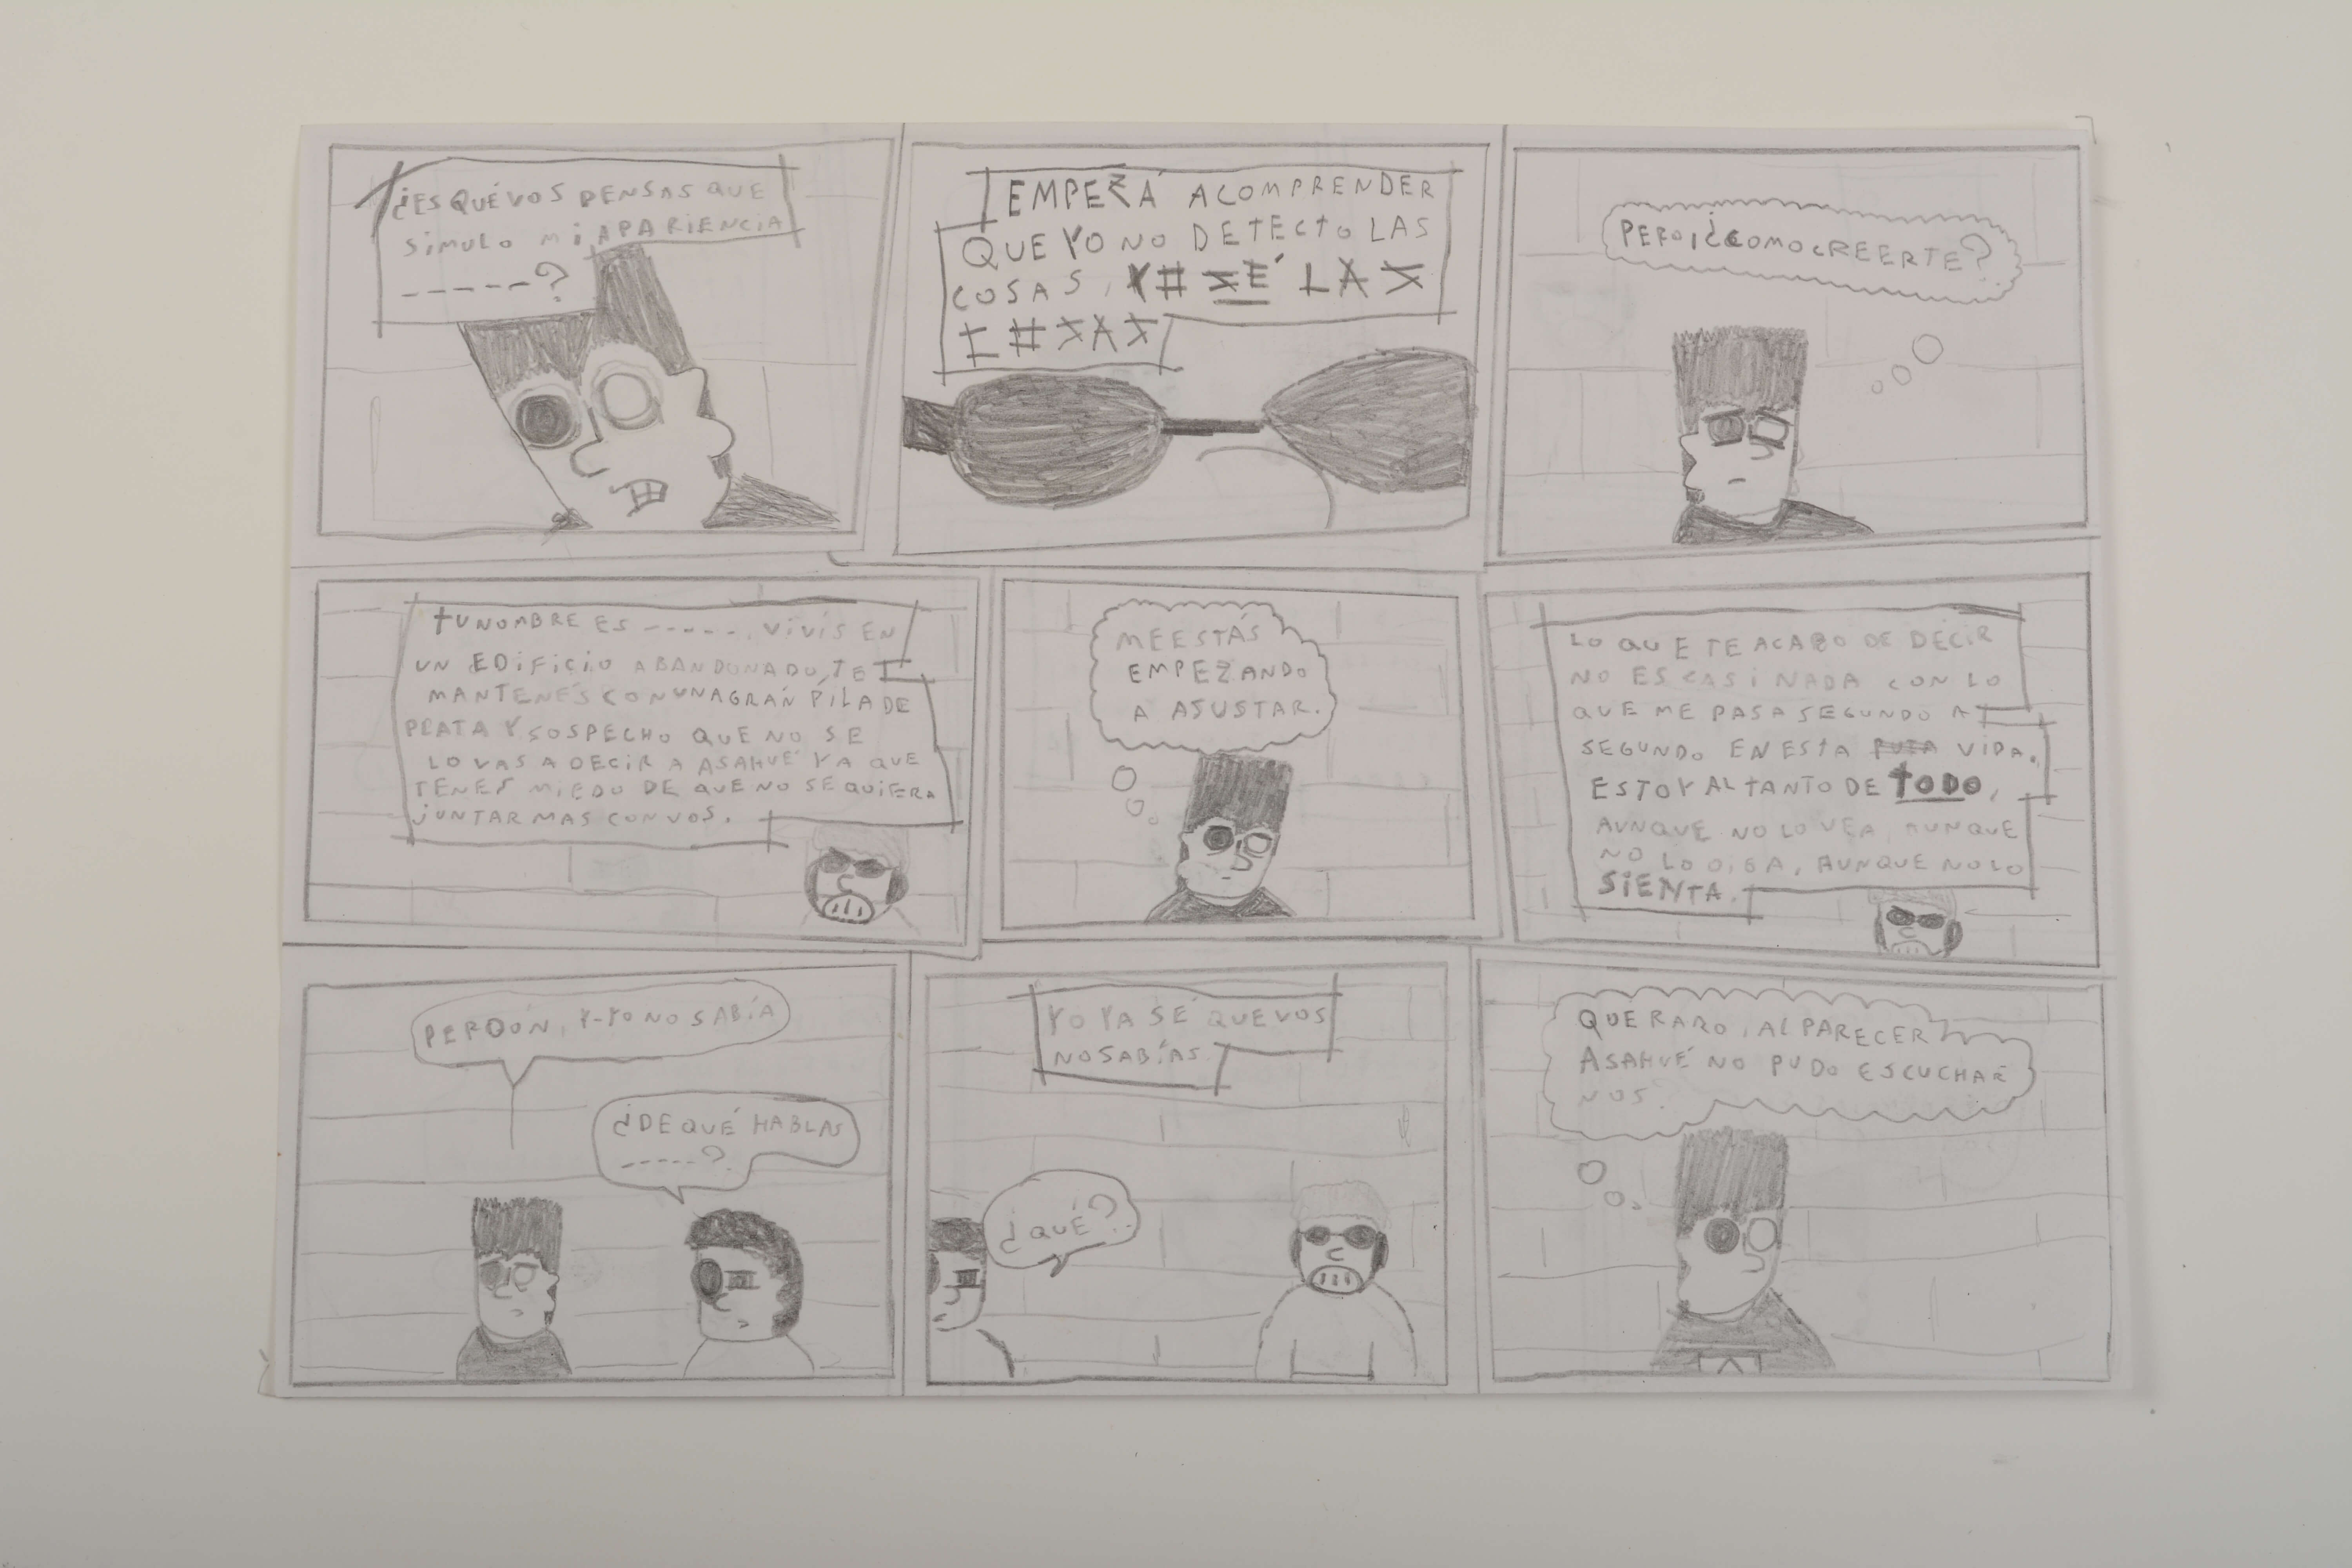 ¿ES QUÉ VOS PENSAS QUE
SIMULO MI APARIENCIA
------?
EMPEZÁ A COMPRENDER
QUE YO NO DETECTO LAS
COSAS, Y# SÉ LAS
C#SAS
PERO ¡¿COMO CREERTE?
TU NOMBRE ES -----, VIVÍS EN
UN EDIFICIO ABANDONADO, TE
MANTENÉS CON UNA GRAN PILA DE
PLATA Y SOSPECHO QUE NO SE
LO VAS A DECIR A ASAHUÉ YA QUE
TENES MIEDO DE QUE NO SE QUIERA
JUNTAR MAS CON VOS.
ME ESTÁS
EMPEZANDO
A ASUSTAR.
LO QUE TE ACABO DE DECIR
NO ES CASI NADA CON LO
QUE ME PASA SEGUNDO A
SEGUNDO EN ESTA PUTA VIDA.
ESTOY AL TANTO DE TODO,
AUNQUE NO LO VEA, AUNQUE
NO LO OIGA, AUNQUE NO LO
SIENTA.
PERDÓN, Y-YO NO SABÍA
¿DE QUÉ HABLAS
-----?
YO YA SÉ QUE VOS
NO SABÍAS.
¿QUÉ?
QUE RARO, AL PARECER
ASAHUÉ NO PUDO ESCUCHAR
NOS.